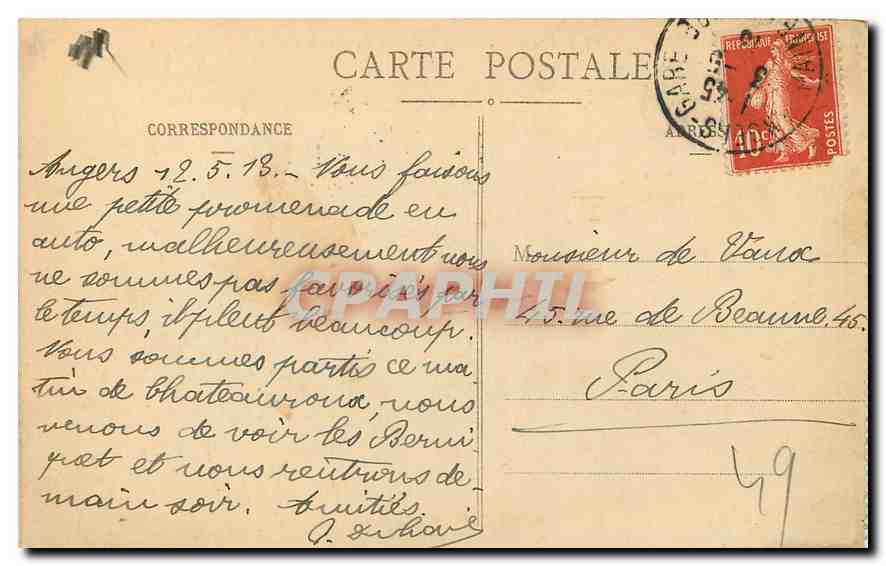 CARTE POSTALE
CORRESPONDANCE
ADRESSE
RÉPUBLIQUE FRANÇAISE
10 c
POSTES
GARE
Angers 12.5.13. - Nous faisons
une petite promenade en
auto, malheureusement nous
ne sommes pas favorisés par
le temps, il pleut beaucoup.
Nous sommes partis ce ma-
tin de Chateauroux, nous
venons de voir les
et nous rentrons de-
main soir. Amitiés.
Monsieur de Vaux
45. rue de Beaune. 45.
Paris
49
CPAPHIL